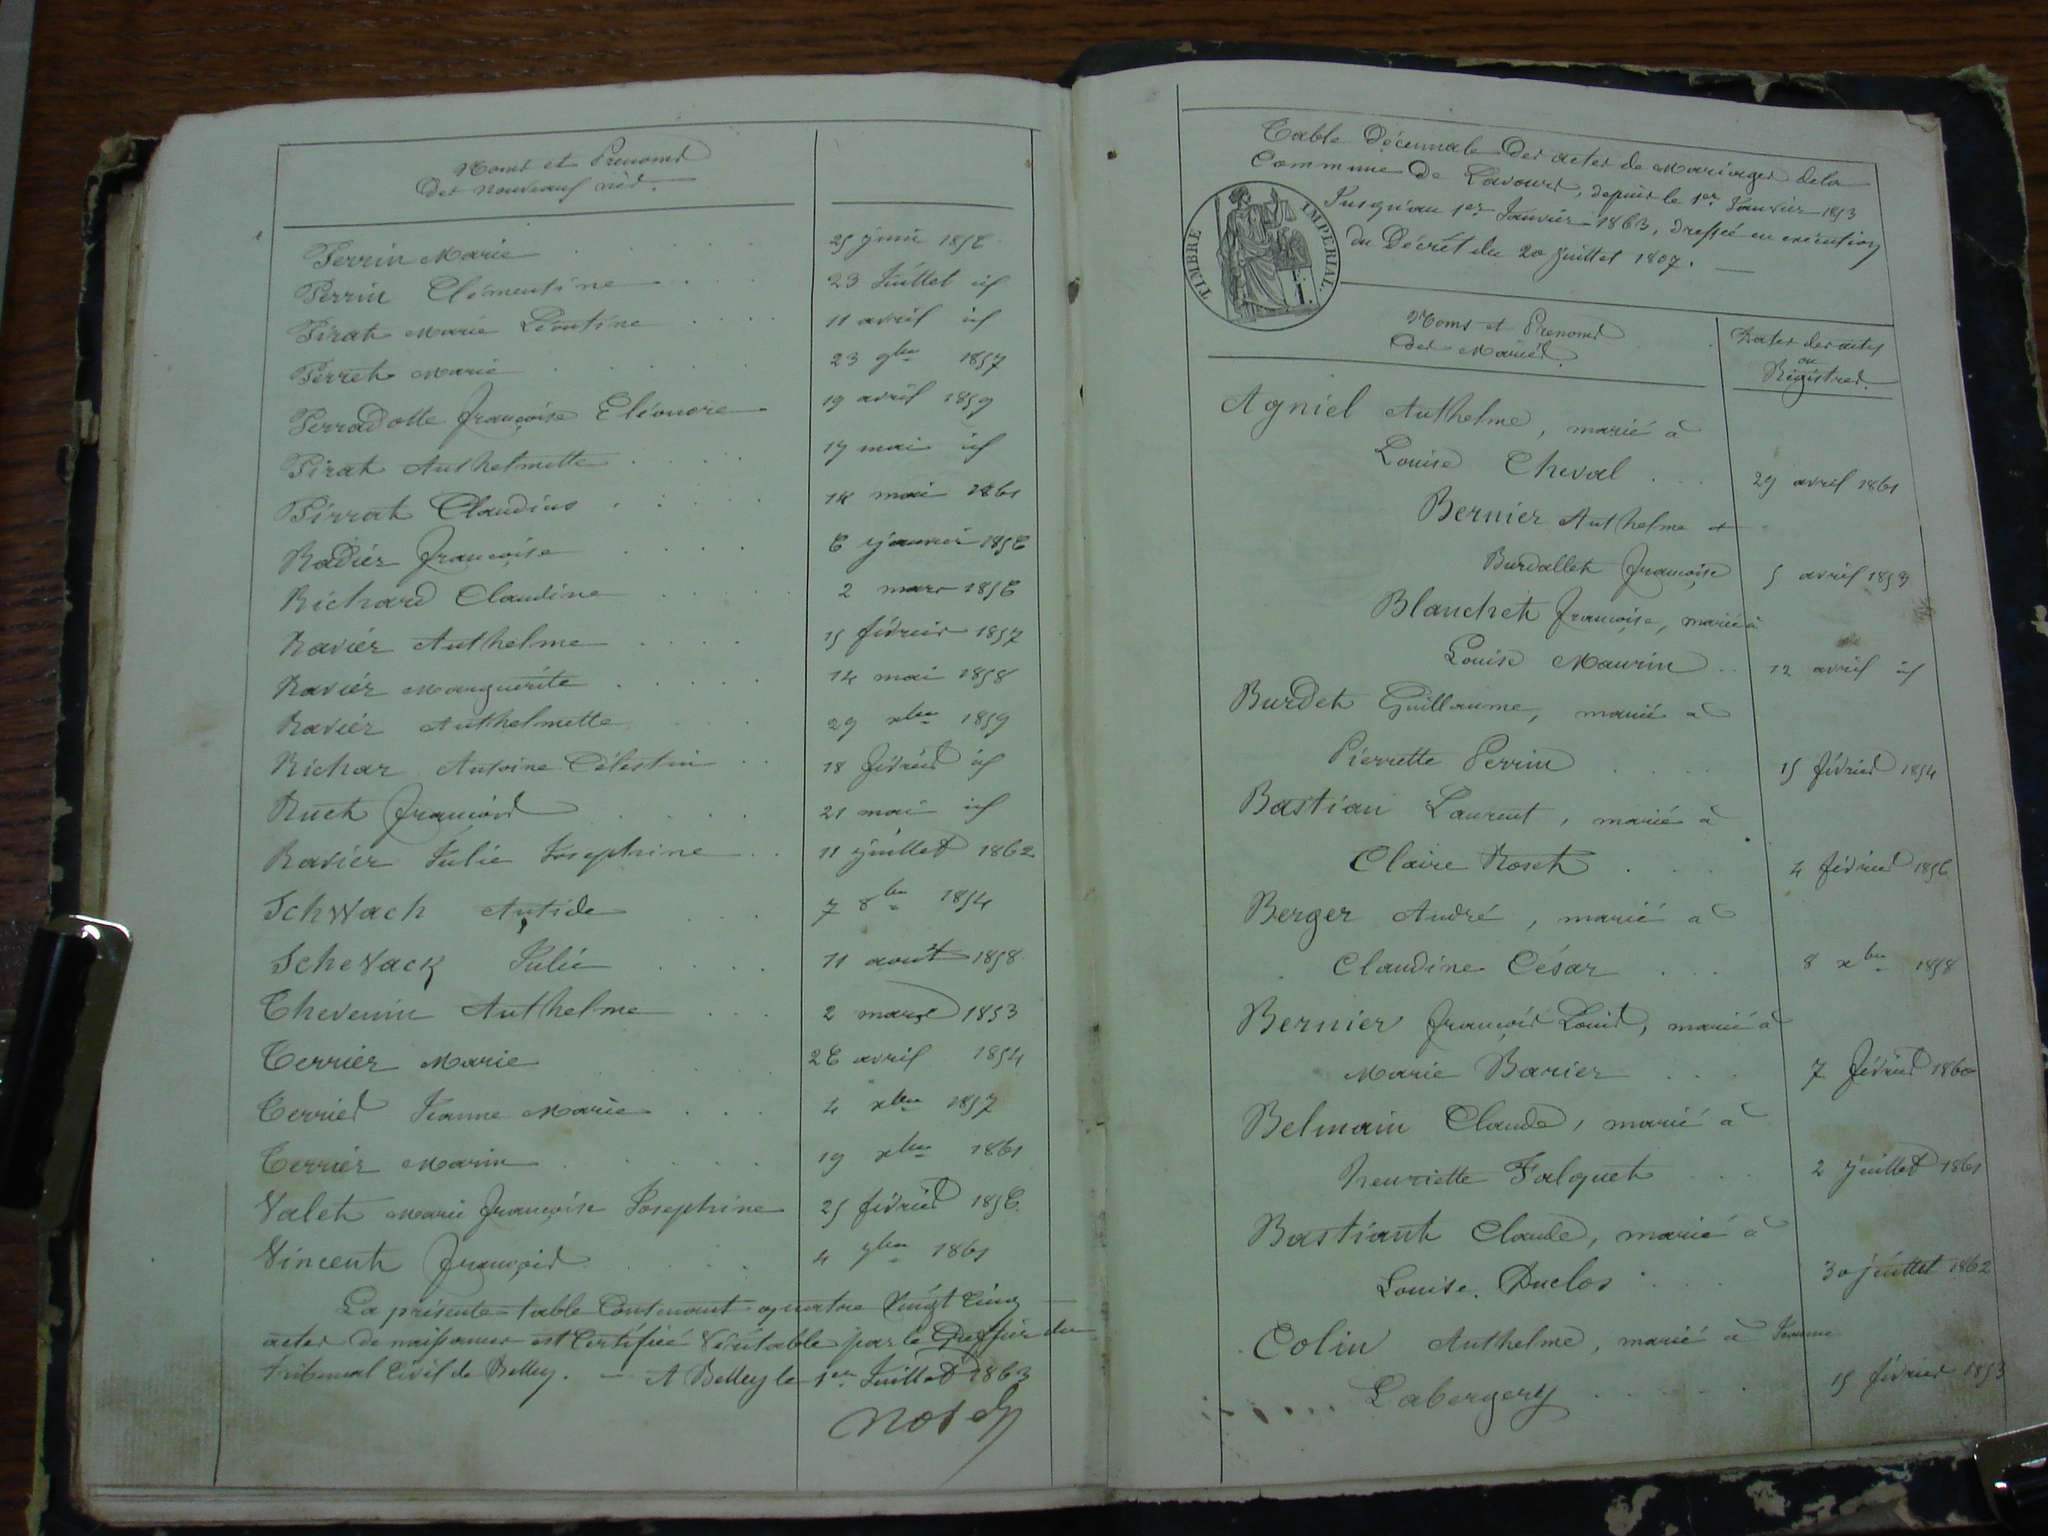 Noms et Prenoms
Des nouveaux nés.
Perrin Marie 25 juin 1856
Perrin Clémentine 23 Juillet id
Pirat Marie Léontine 11 avril id
Perret Marie 23 9bre 1857
Perradotte Françoise Eléonore 19 avril 1859
Pirat Anthelmette 17 mai id
Pirrat Claudius 14 mai 1861
Radier Françoise 6 janvier 1856
Richard Claudine 2 mars 1856
Ravier Anthelme 15 février 1857
Ravier Marguerite 14 mai 1858
Ravier Anthelmette 29 xbre 1859
Richar Antoine Célestin 18 février id
Ruet François 21 mai id
Ravier Julie Josephine 11 juillet 1862
Schwach Antide 7 8bre 1854
Schevack Julie 11 août 1858
Thevenin Anthelme 2 mars 1853
Terrier Marie 26 avril 1854
Terrier Jeanne Marie 4 xbre 1857
Terrier Marin 19 xbre 1861
Valet Marie Françoise Josephine 25 février 1856
Vincent François 4 9bre 1861
La présente table Contenant quatre Vingt Cinq
actes de naissances est Certifiée Véritable par le Greffier du
tribunal Civil de Belley. — A Belley le 1er Juillet 1863
Table Décennale Des actes de Mariages de la
Commune de Lavours, depuis le 1er Janvier 1853
Jusqu'au 1er Janvier 1863, dressée en exécution
du Décret du 20 Juillet 1807. —
TIMBRE IMPERIAL.
Noms et Prenoms
Des Mariés.
Dates des actes
ou
Régistres.
Agniel Anthelme, marié à
Louise Cheval . . . 29 avril 1861
Bernier Anthelme et
Burdallet Françoise 5 avril 1853
Blanchet Françoise, mariée à
Louise Maurin . . 12 avril id
Burdet Guillaume, marié à
Pierrette Perrin . . . . 15 février 1854
Bastian Laurent, marié à
Claire Roset . . . 4 février 1856
Berger André, marié à
Claudine César . . . 8 xbre 1858
Bernier François Louis, marié à
Marie Barier . . . 7 février 1860
Belmain Claude, marié à
henriette Falquet . . . 2 juillet 1861
Bastiant Claude, marié à
Louise Duclos . . . 30 juillet 1862
Colin Anthelme, marié à Jeanne
Labergery . . . . . 15 février 1853